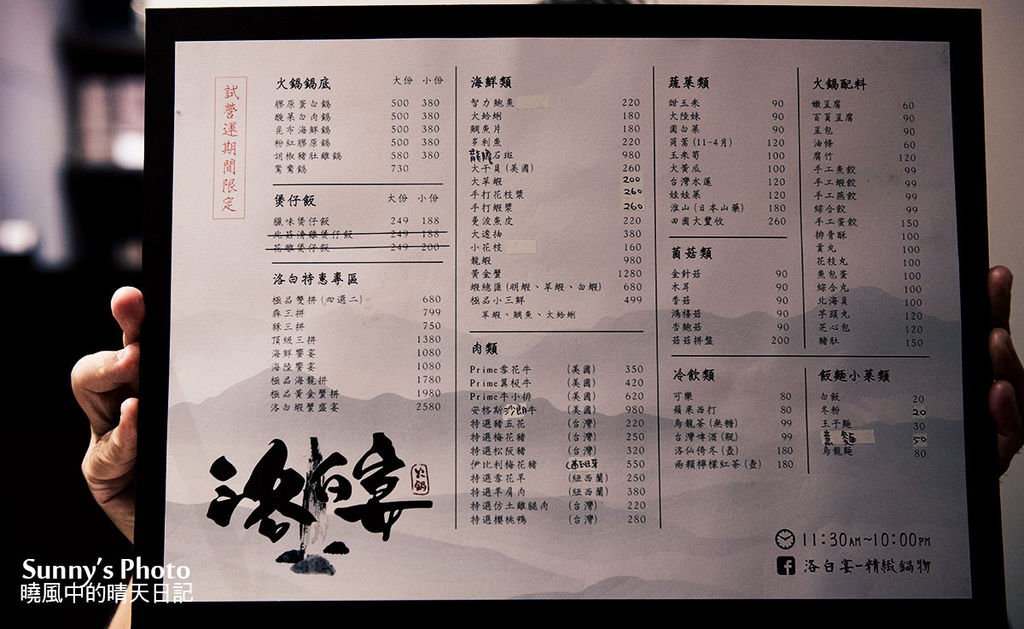 試營運期間限定
火鍋鍋底 大份 小份
膠原蛋白鍋 500 380
酸菜白肉鍋 500 380
昆布海鮮鍋 500 380
粉紅膠原鍋 500 380
胡椒豬肚雞鍋 580 380
鴛鴦鍋 730
煲仔飯 大份 小份
臘味煲仔飯 249 188
北菇滑雞煲仔飯 249 188
花雕煲仔飯 249 200
洛白特惠專區
極品雙拼(四選二) 680
犇三拼 799
豩三拼 750
頂級三拼 1380
海鮮饗宴 1080
海陸饗宴 1080
極品海龍拼 1780
極品黃金蟹拼 1980
洛白蝦蟹盛宴 2580
洛白宴
火鍋
海鮮類
智力鮑魚 220
大蛤蜊 180
鯛魚片 180
多利魚 220
龍膽石斑 980
大干貝(美國) 260
大草蝦 200
手打花枝漿 260
手打蝦漿 260
曼波魚皮 220
大透抽 380
小花枝 160
龍蝦 980
黃金蟹 1280
蝦總匯(明蝦、草蝦、白蝦) 680
極品小三鮮 499
草蝦、鯛魚、大蛤蜊
肉類
Prime雪花牛 (美國) 350
Prime翼板牛 (美國) 420
Prime牛小排 (美國) 620
安格斯沙朗牛 (美國) 980
特選豬五花 (台灣) 220
特選梅花豬 (台灣) 250
特選松阪豬 (台灣) 320
伊比利梅花豬 (西班牙) 550
特選雪花羊 (紐西蘭) 250
特選羊肩肉 (紐西蘭) 380
特選仿土雞腿肉 (台灣) 220
特選櫻桃鴨 (台灣) 280
蔬菜類
甜玉米 90
大陸妹 90
圓白菜 90
茼蒿(11-4月) 120
玉米筍 100
大黃瓜 100
台灣水蓮 120
娃娃菜 120
淮山(日本山藥) 180
田園大豐收 260
菌菇類
金針菇 90
木耳 90
香菇 90
鴻禧菇 90
杏鮑菇 90
菇菇拼盤 200
冷飲類
可樂 80
蘋果西打 80
烏龍茶(無糖) 99
台灣啤酒(瓶) 99
洛仙倚冬(壺) 180
兩顆檸檬紅茶(壺) 180
火鍋配料
嫩豆腐 60
百頁豆腐 90
豆包 90
油條 60
腐竹 120
手工魚餃 99
手工蝦餃 99
手工燕餃 99
綜合餃 99
手工蛋餃 150
排骨酥 100
貢丸 100
花枝丸 100
魚包蛋 100
綜合丸 100
北海貝 100
芋頭丸 120
芝心包 120
豬肚 150
飯麵小菜類
白飯 20
冬粉 20
王子麵 30
意麵 50
烏龍麵 80
11:30AM~10:00PM
洛白宴-精緻鍋物
Sunny's Photo
曉風中的晴天日記